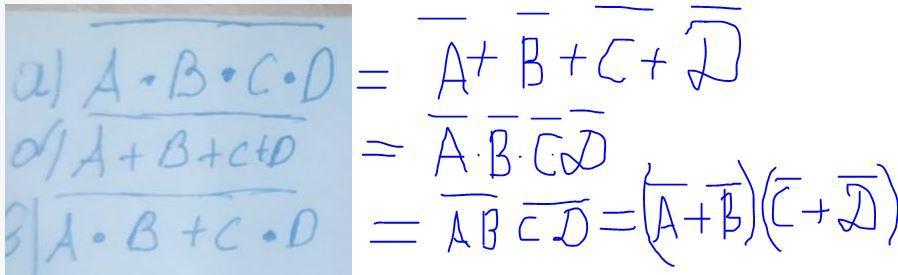 а) A̅ ̅•̅ ̅B̅ ̅•̅ ̅C̅ ̅•̅ ̅D̅ = A̅ + B̅ + C̅ + D̅
б) A̅ ̅+̅ ̅B̅ ̅+̅ ̅C̅ ̅+̅ ̅D̅ = A̅ · B̅ · C̅ · D̅
в) A̅ ̅•̅ ̅B̅ ̅+̅ ̅C̅ ̅•̅ ̅D̅ = A̅B̅ C̅D̅ = (A̅ + B̅)(C̅ + D̅)